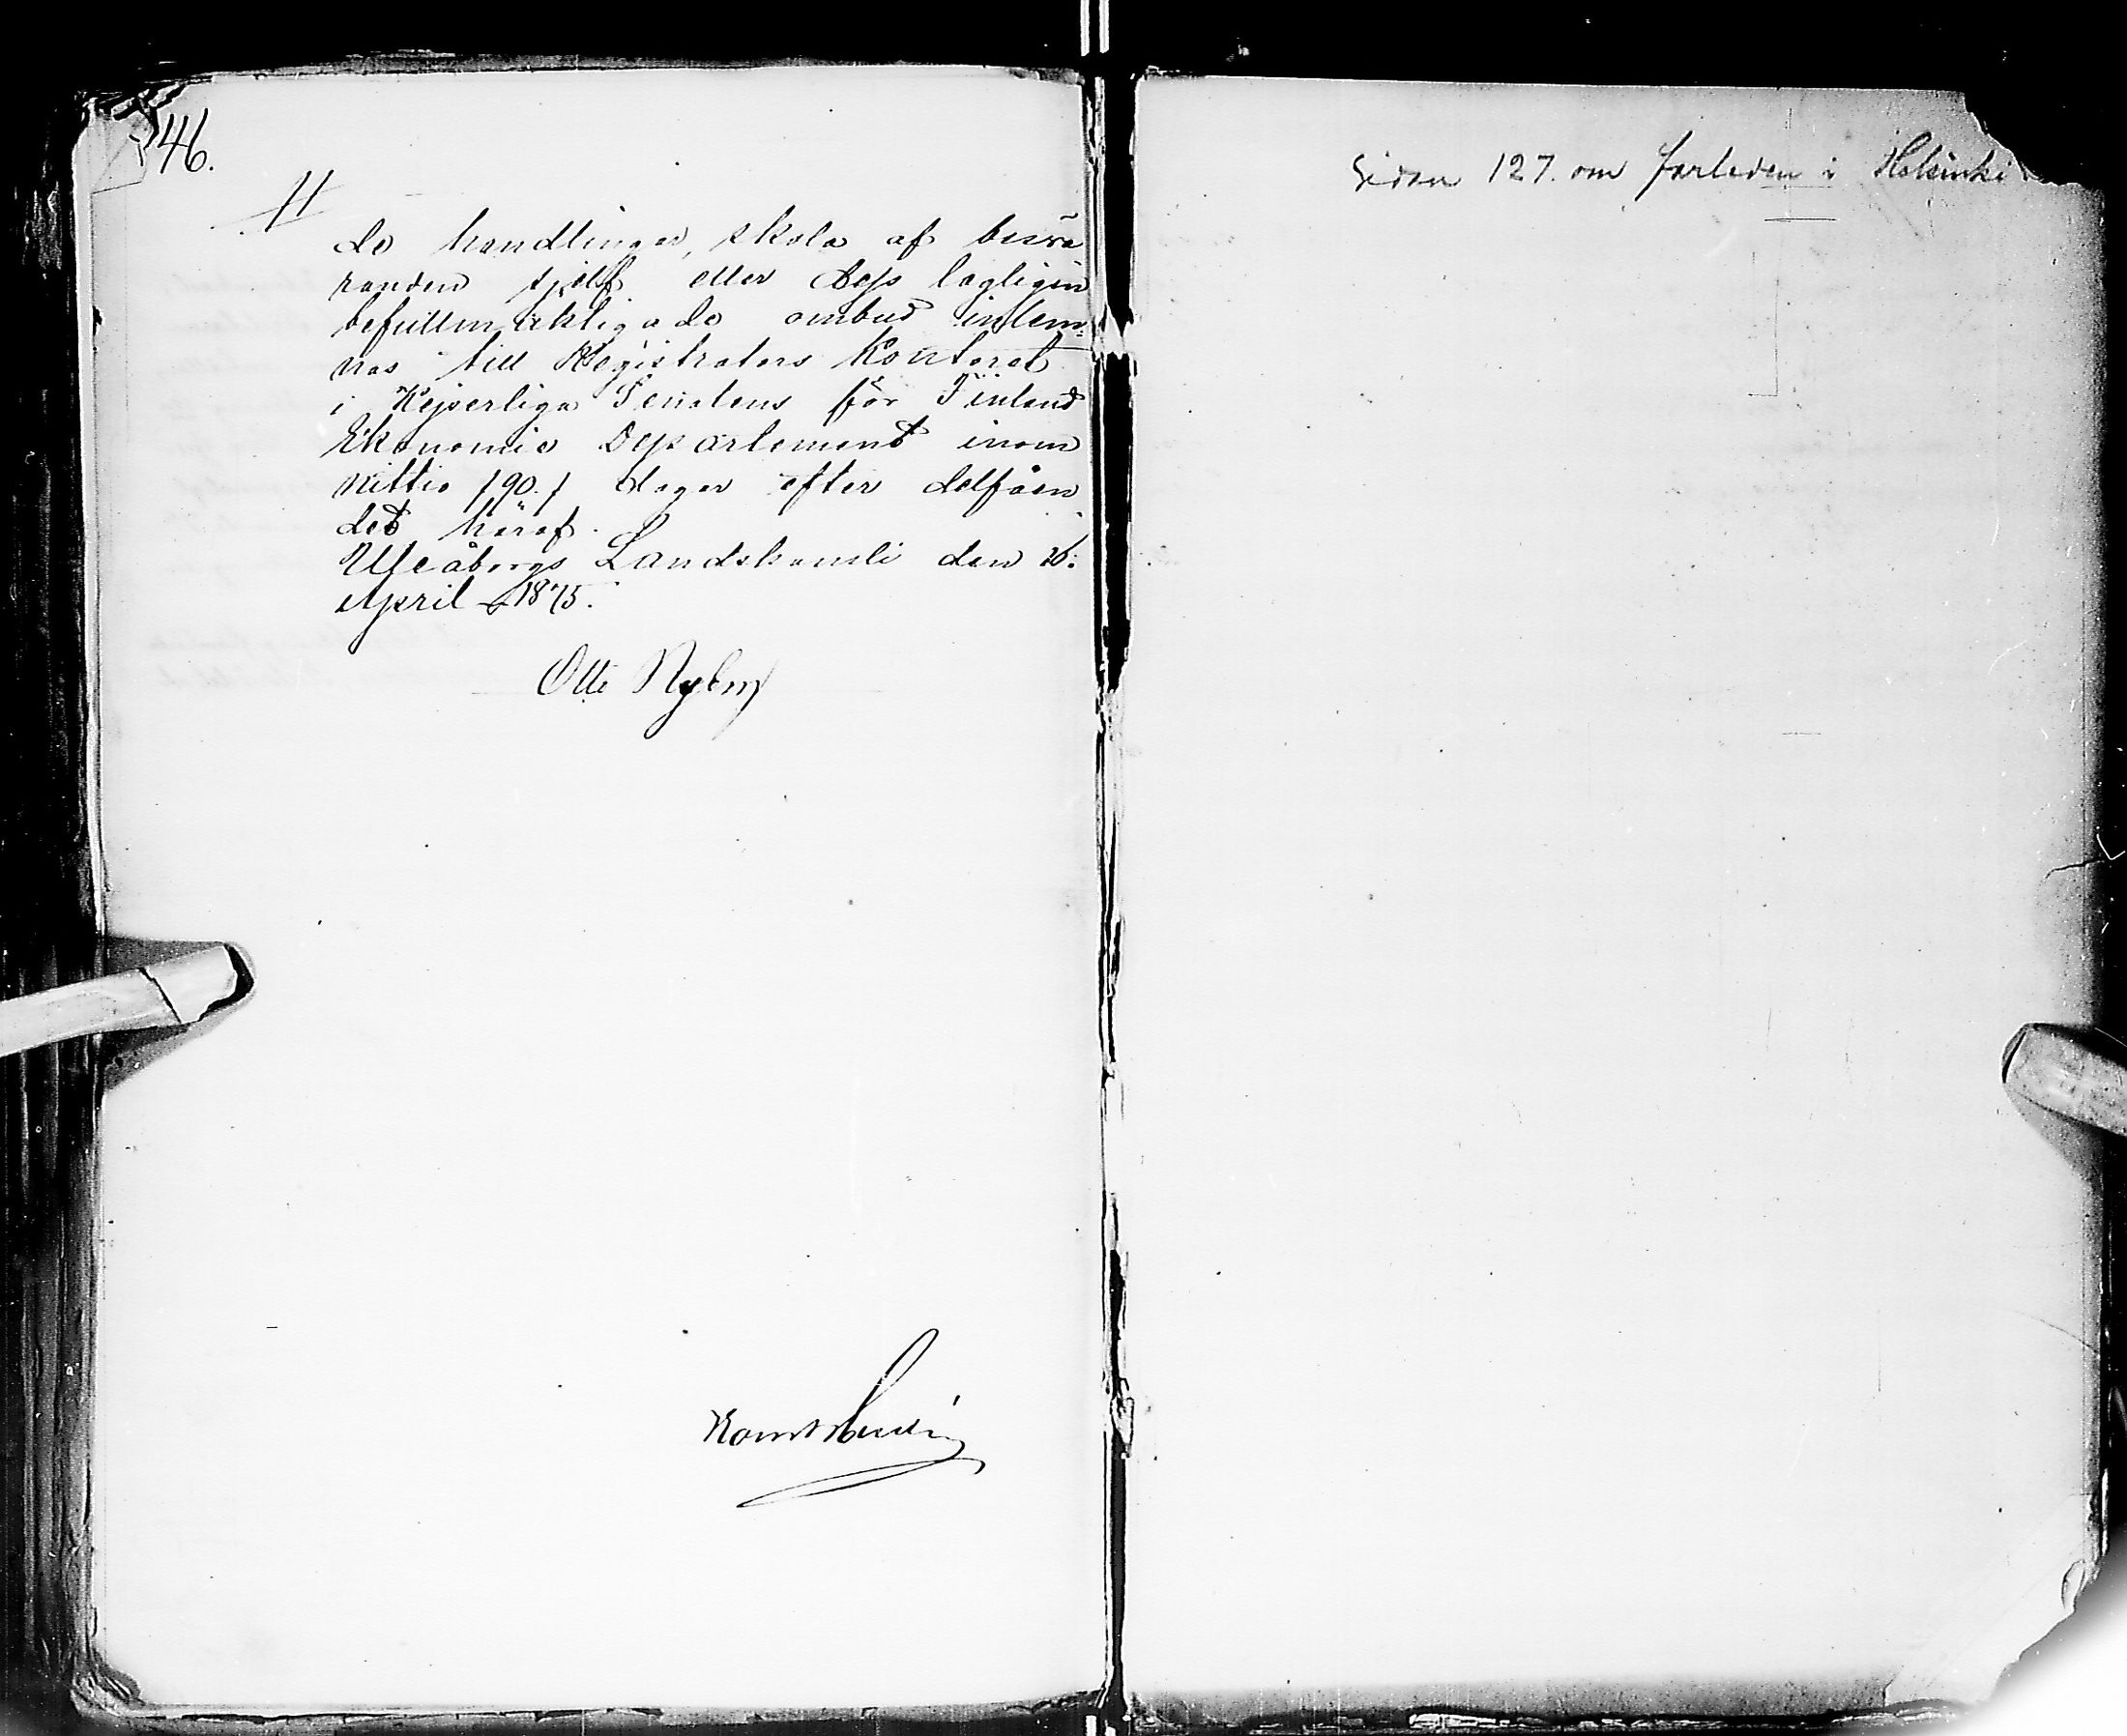 146.
de handlingar, skola af besvä
randen sjelf eller dess lagligen
befullmäktigade ombud inlem-
nas till Registrators Kontoret
i Kejserliga Senatens för Finland
Ekonomie Departement inom
nittio /90./ dagar efter delfåen
det häraf.
Uleåborgs Landskansli den 26:
April 1875.
Otto Nyberg
Sidan 127. om farleden i